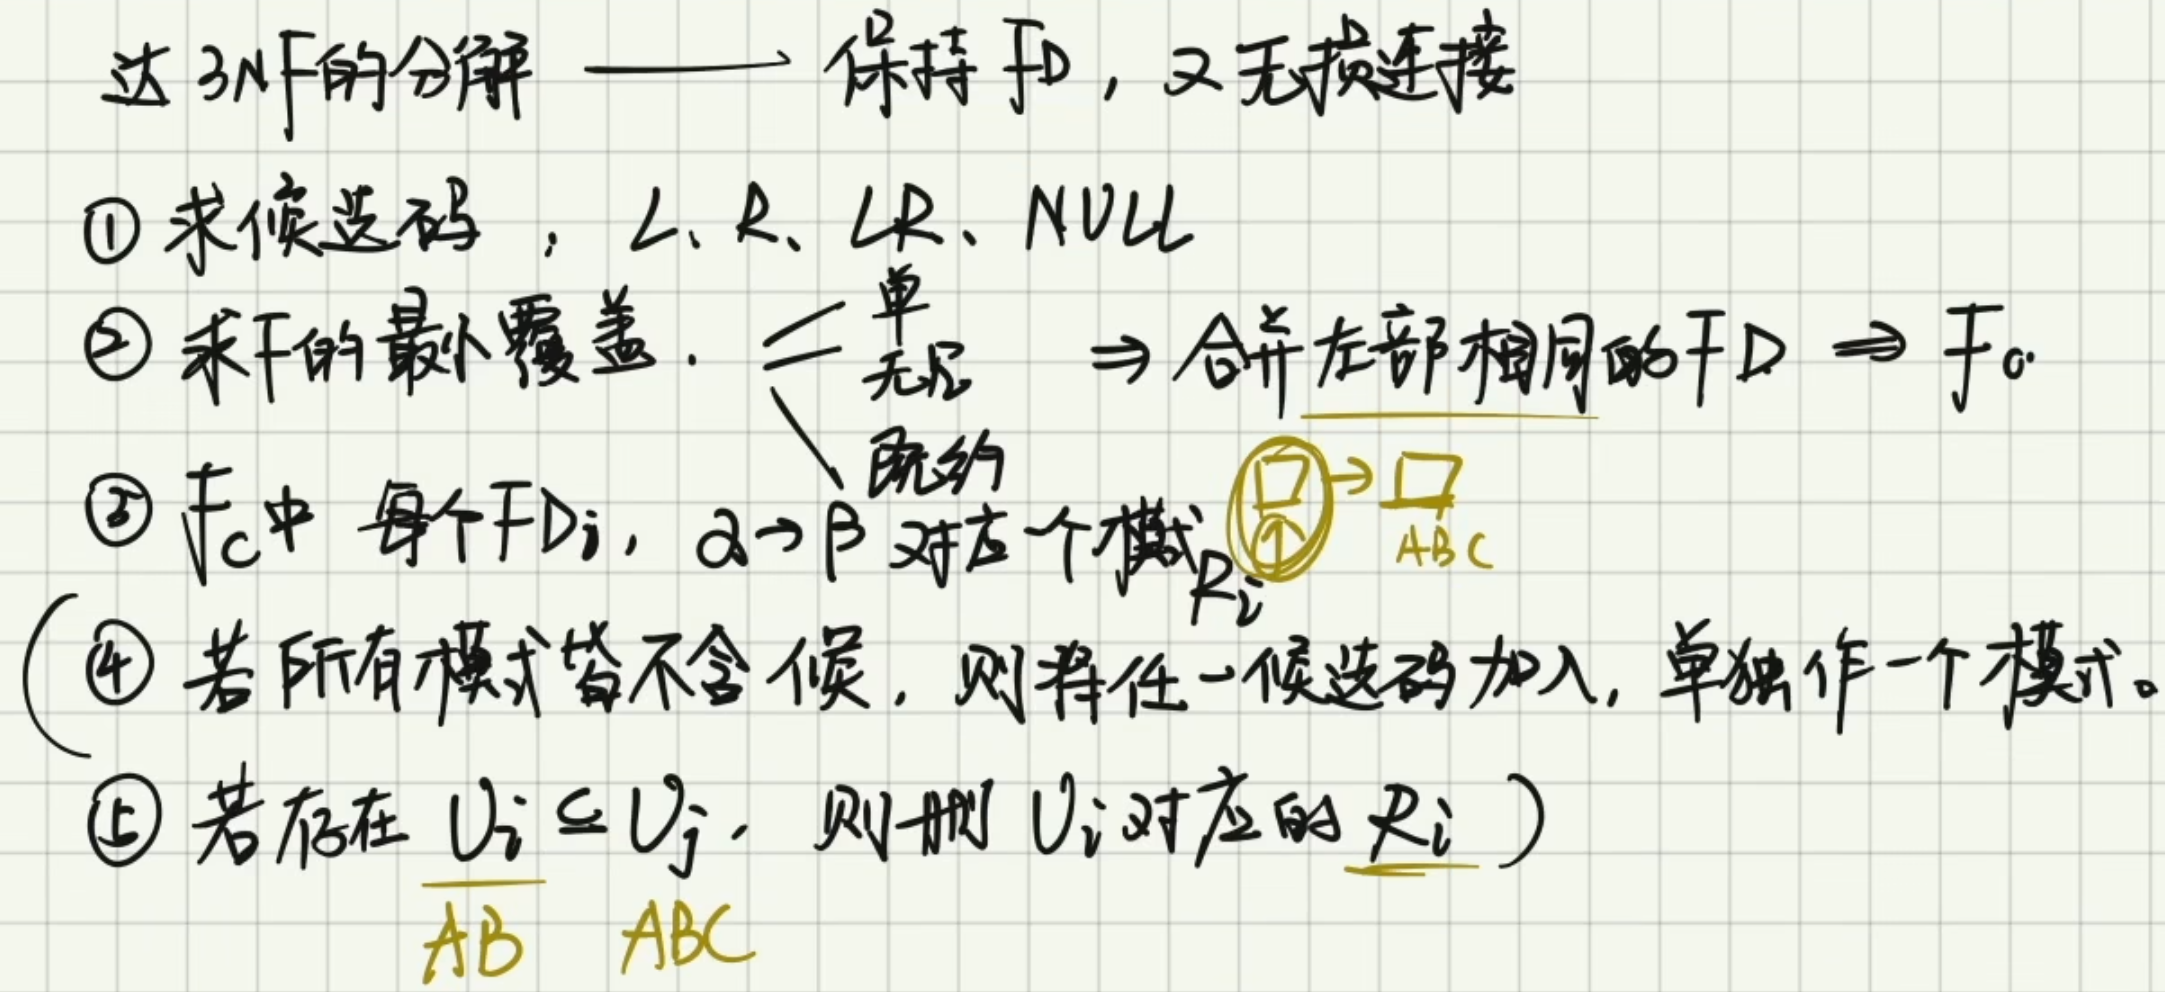 达3NF的分解 ——→ 保持FD，又无损连接
① 求候选码，L、R、LR、NULL
② 求F的最小覆盖. 单 ⇒ 合并左部相同的FD ⇒ Fc.
无冗
既约
③ Fc中 每个FDi，α→β 对应一个模式Ri □→□
① ABC
(④ 若所有模式皆不含候，则将任一候选码加入，单独作一个模式。
⑤ 若存在 Ui ⊆ Uj，则删Ui对应的Ri)
AB ABC